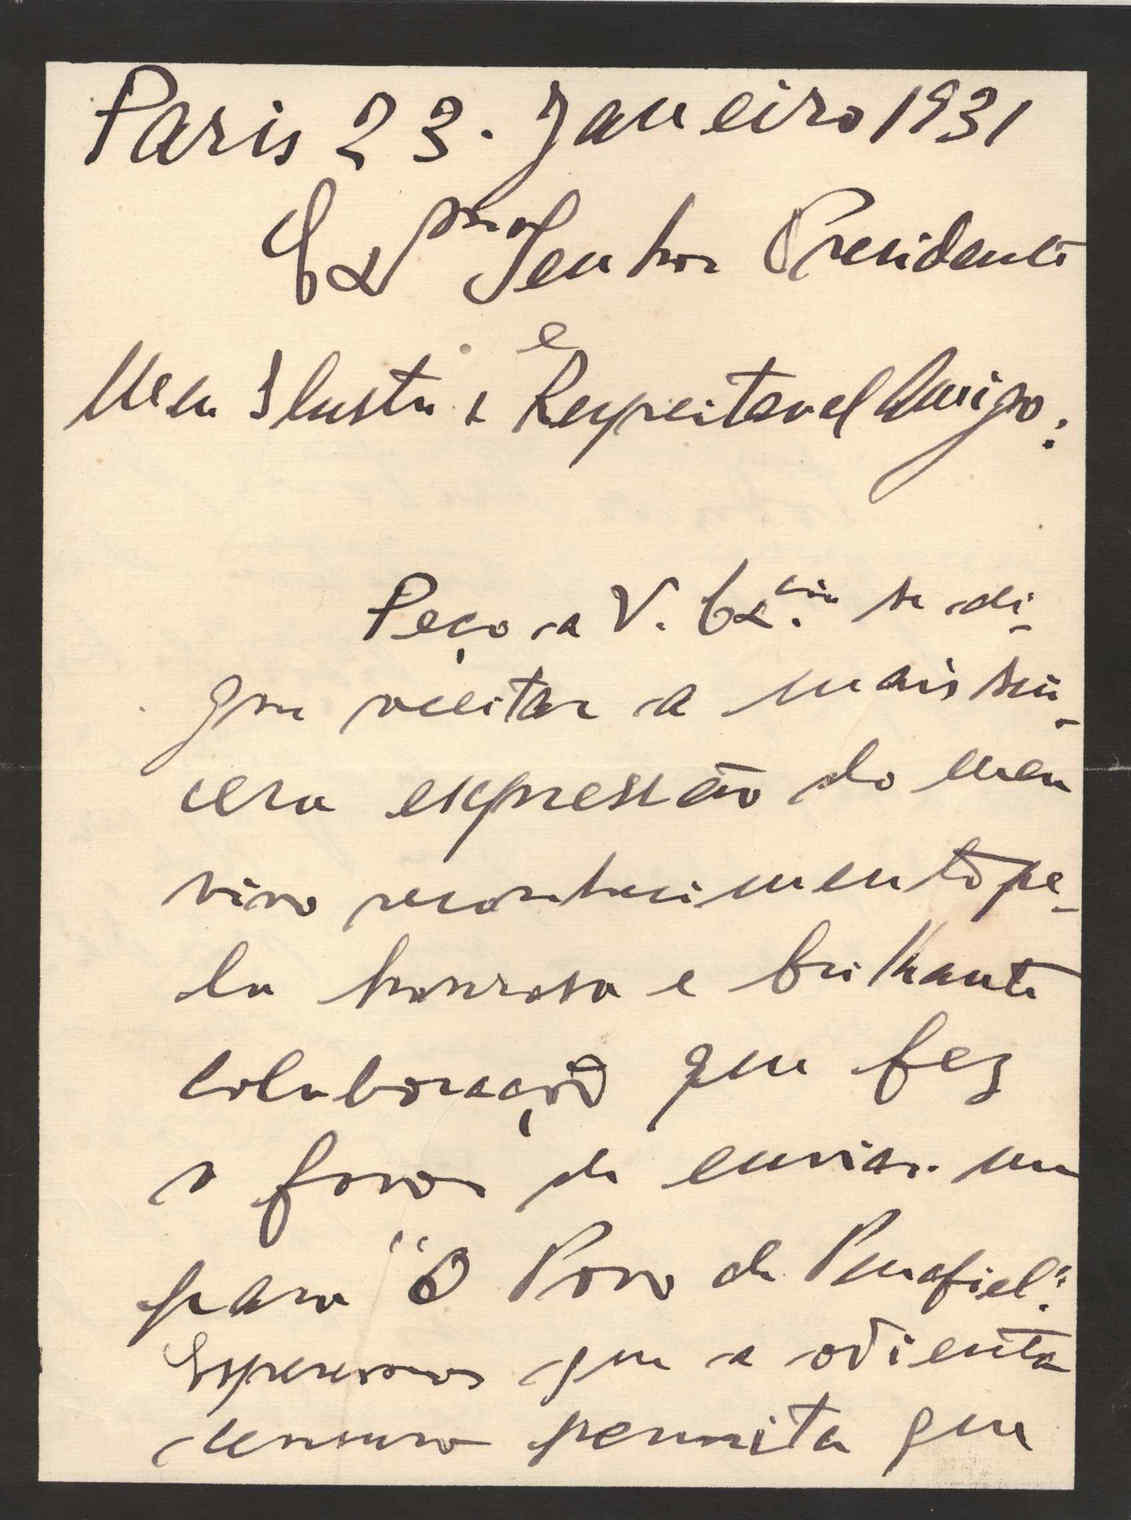 Paris 23. Janeiro 1931
Ex.mo Senhor Presidente
e
Meu Ilustre e Respeitavel Amigo:
Peço a V. Ex.cia se di-
gne aceitar a mais sin-
cera expressão do meu
vivo reconhecimento pe-
la honrosa e brilhante
colaboração que fez
o favor de enviar-me
para "O Povo de Penafiel".
Esperemos que a odienta
censura permita que